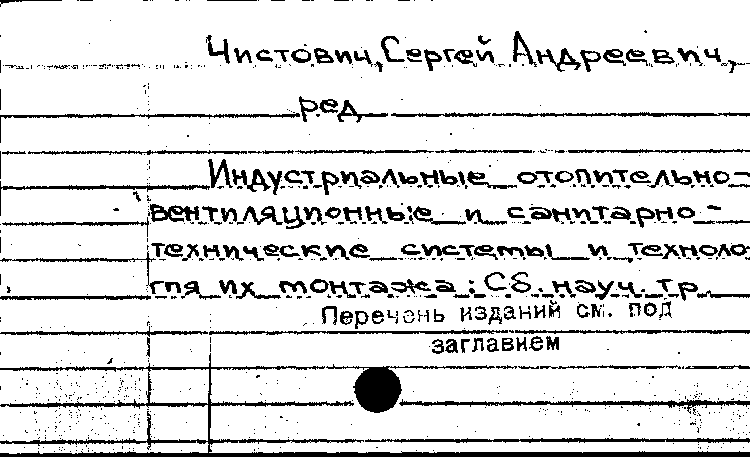 Чистович, Сергей Андреевич,
ред
Индустриальные отопительно-
вентиляционные и санитарно-
технические системы и техноло
гия их монтажа: Сб. науч. тр.
Перечень изданий см. под
заглавием